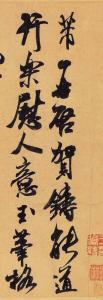 芾再啓賀鑄能道
行樂慰人意玉筆格